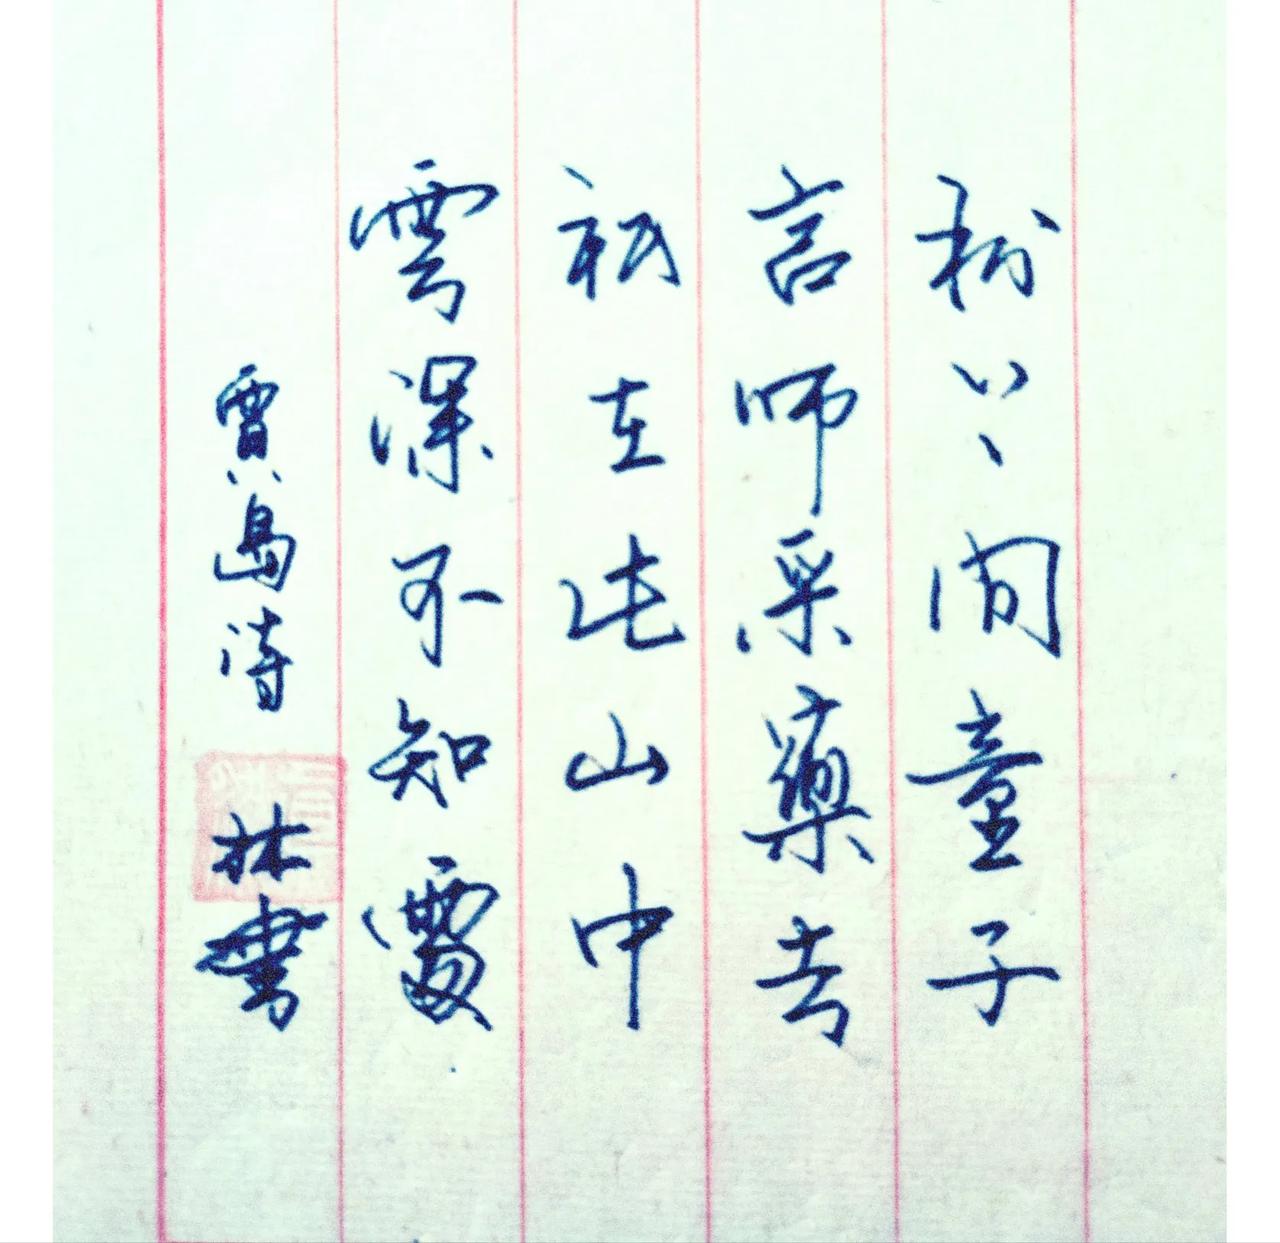 松下問童子
言師采藥去
祇在此山中
雲深不知處
賈島詩 林書